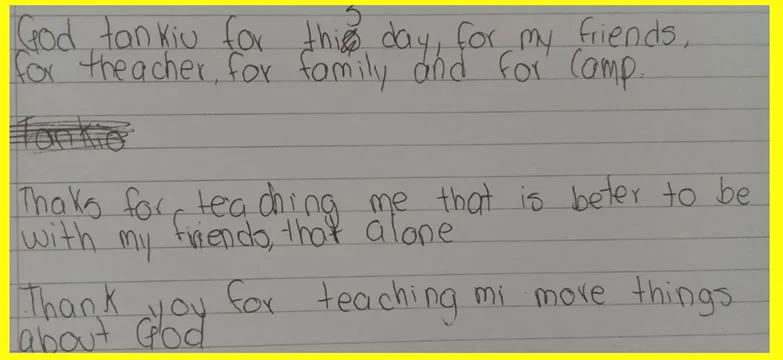 God tankiu for this day, for my friends,
for theacher, for family and for Camp.
tankio
Thaks for teaching me that is beter to be
with my friends, that alone
Thank you for teaching mi more things
about God